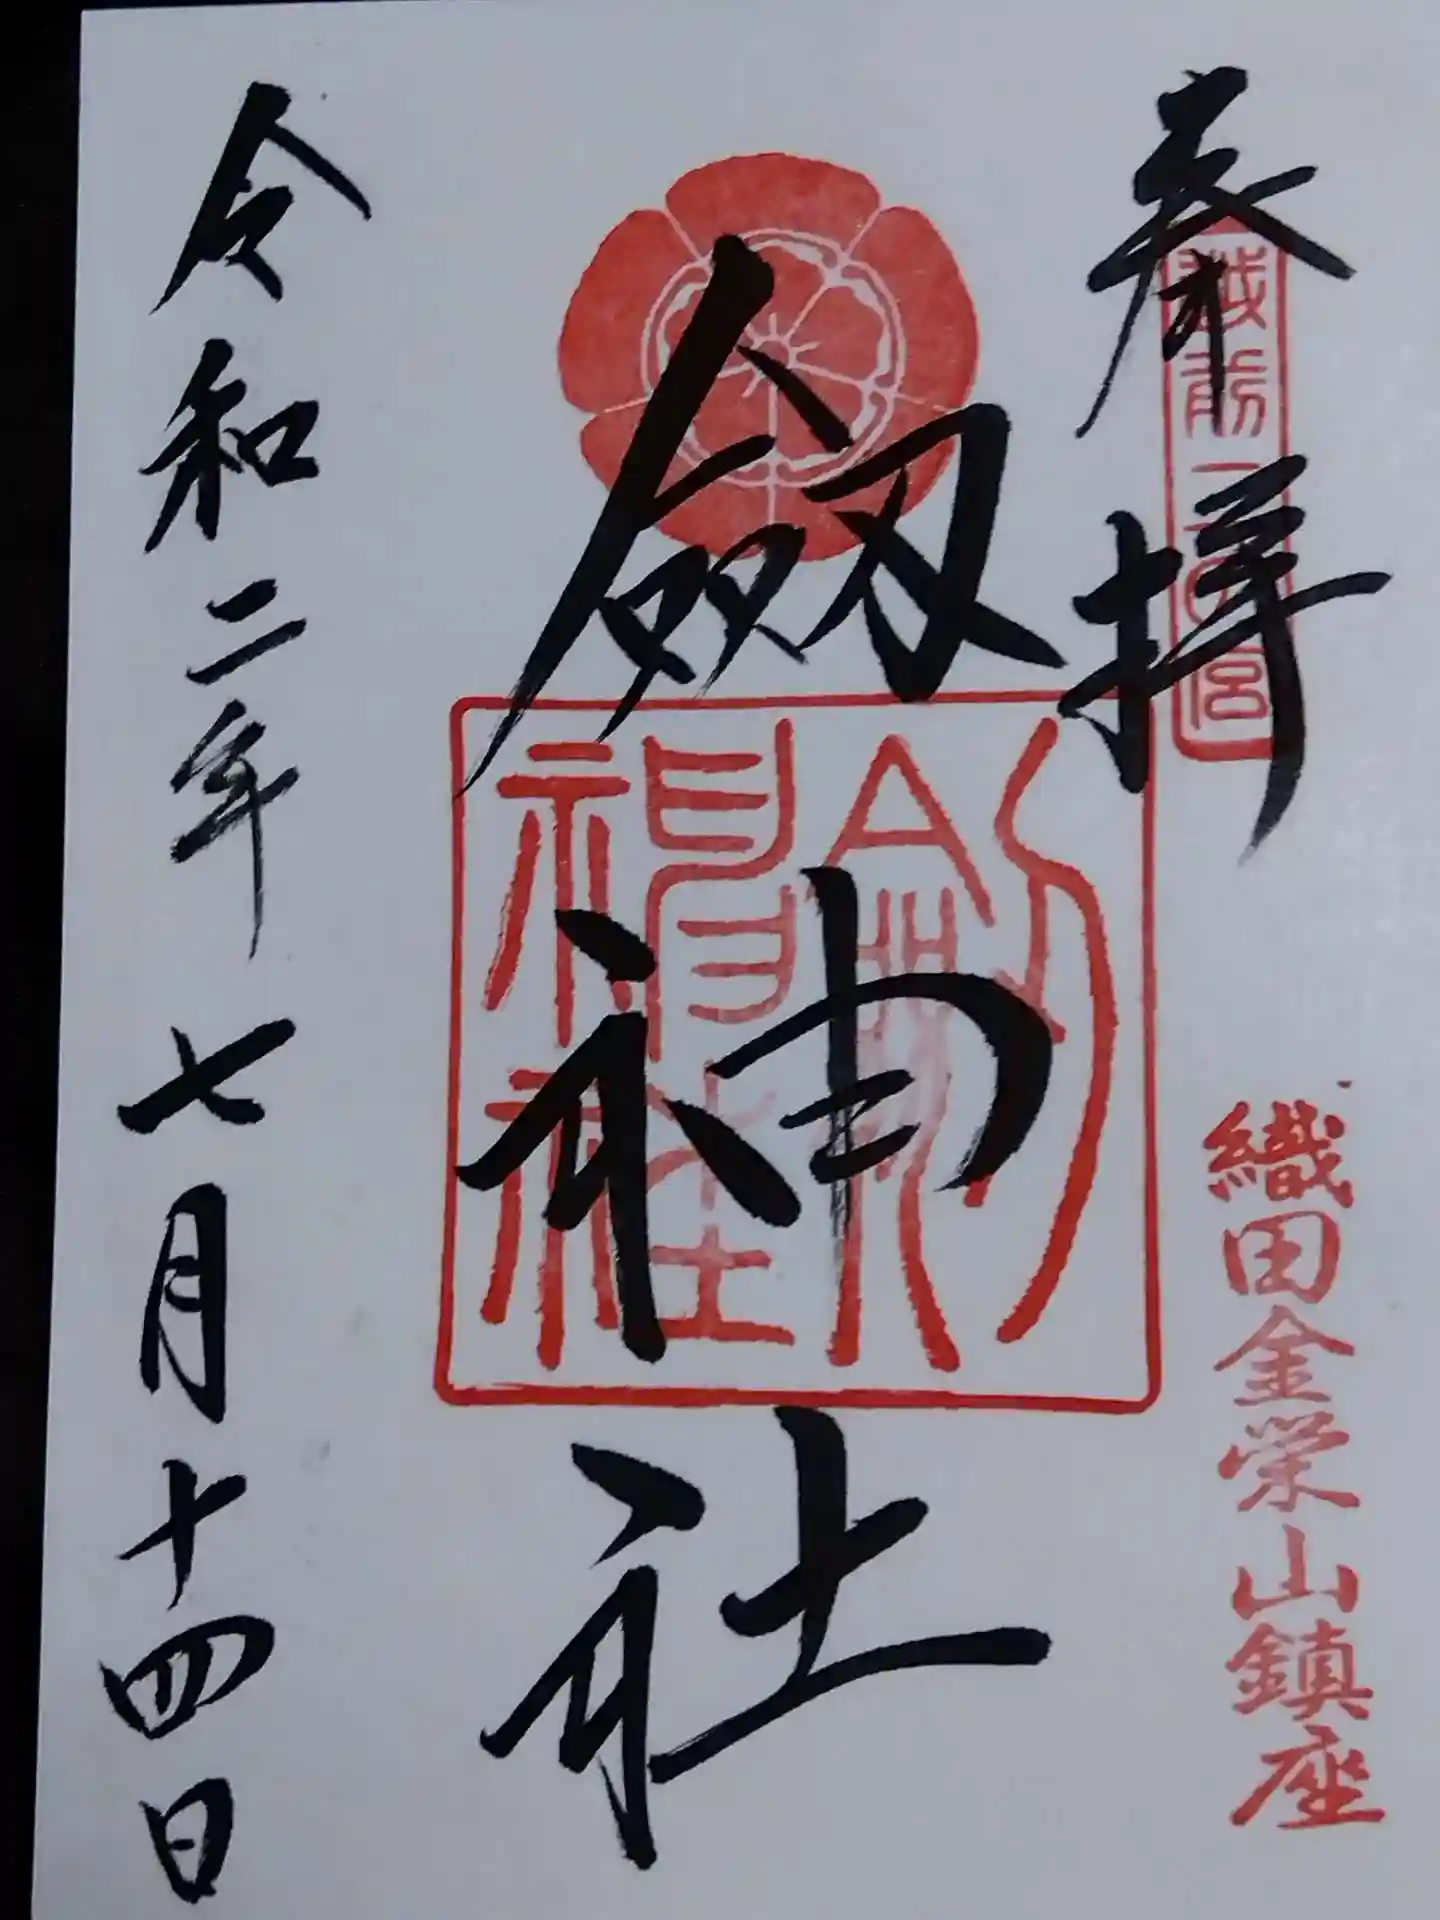 奉拝
越前二の宮
織田金栄山鎮座
劔神社
劔神社
令和二年七月十四日